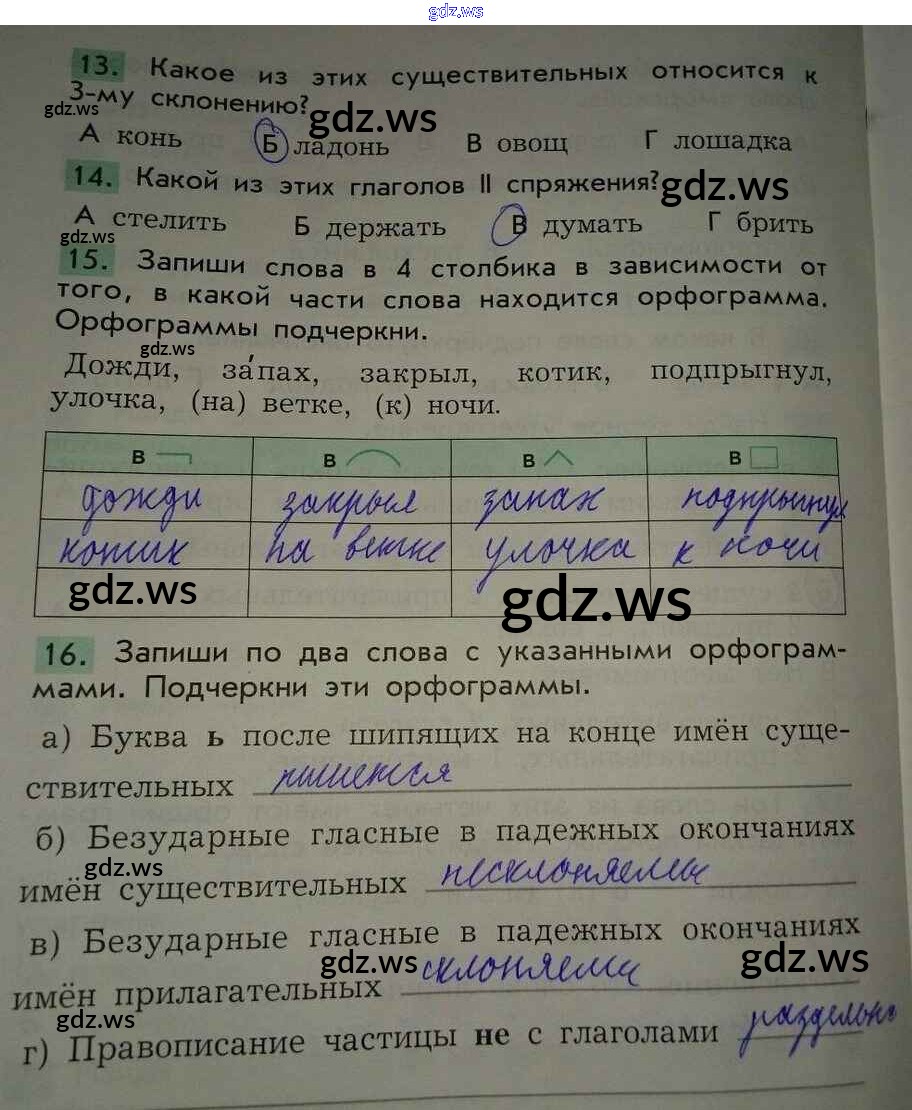 gdz.ws
13. Какое из этих существительных относится к
3-му склонению?
gdz.ws gdz.ws
А конь Б ладонь В овощ Г лошадка
14. Какой из этих глаголов II спряжения?
gdz.ws
А стелить Б держать В думать Г брить
gdz.ws
15. Запиши слова в 4 столбика в зависимости от
того, в какой части слова находится орфограмма.
Орфограммы подчеркни.
gdz.ws
Дожди, за́пах, закрыл, котик, подпрыгнул,
улочка, (на) ветке, (к) ночи.
в в в в
дожди закрыл запах подпрыгнул
котик на ветке улочка к ночи
gdz.ws gdz.ws
16. Запиши по два слова с указанными орфограм-
мами. Подчеркни эти орфограммы.
а) Буква ь после шипящих на конце имён суще-
ствительных пишется
б) Безударные гласные в падежных окончаниях
gdz.ws
имён существительных несклоняемы
в) Безударные гласные в падежных окончаниях
gdz.ws gdz.ws
имён прилагательных склоняемы
gdz.ws
г) Правописание частицы не с глаголами раздельно